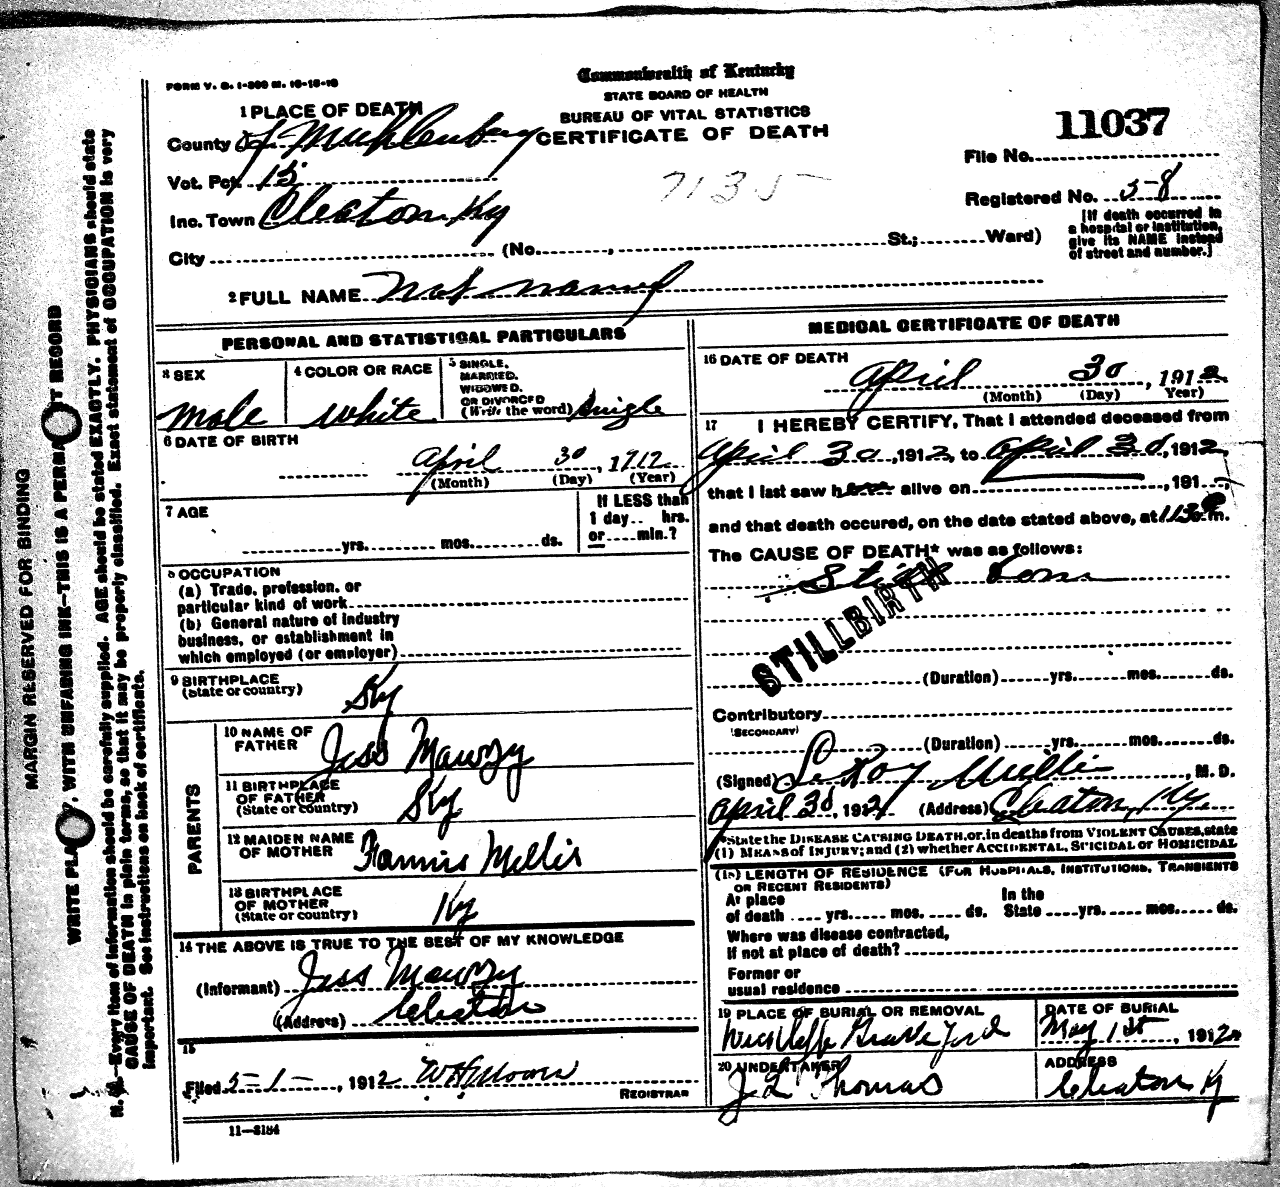 FORM V. S. 1-300 M. 10-15-10
Commonwealth of Kentucky
STATE BOARD OF HEALTH
BUREAU OF VITAL STATISTICS
CERTIFICATE OF DEATH
11037
File No.
7135
Registered No. 58
[If death occurred in
a hospital or institution,
give its NAME instead
of street and number.]
1 PLACE OF DEATH
County of Muhlenburg
Vot. Pct. 15
Inc. Town Cleaton Ky
City (No. , St.; Ward)
2 FULL NAME Not named
PERSONAL AND STATISTICAL PARTICULARS
3 SEX
male
4 COLOR OR RACE
white
5 SINGLE,
MARRIED,
WIDOWED,
OR DIVORCED
(Write the word) Single
6 DATE OF BIRTH
April 30, 1912
(Month) (Day) (Year)
7 AGE
yrs. mos. ds.
If LESS than
1 day.. hrs.
or....min.?
8 OCCUPATION
(a) Trade, profession, or
particular kind of work
(b) General nature of industry
business, or establishment in
which employed (or employer)
9 BIRTHPLACE
(State or country)
Ky
PARENTS
10 NAME OF
FATHER
Jess Mawzy
11 BIRTHPLACE
OF FATHER
(State or country)
Ky
12 MAIDEN NAME
OF MOTHER
Fannis Millis
13 BIRTHPLACE
OF MOTHER
(State or country)
Ky
14 THE ABOVE IS TRUE TO THE BEST OF MY KNOWLEDGE
(Informant) Jess Mawzy
(Address) Cleaton
15
Filed 5-1-, 1912 W H Moore
REGISTRAR
11-3184
MEDICAL CERTIFICATE OF DEATH
16 DATE OF DEATH
April 30, 1912
(Month) (Day) Year)
17 I HEREBY CERTIFY, That I attended deceased from
April 30, 1912, to April 30, 1912,
that I last saw h alive on , 191
and that death occured, on the date stated above, at 1130 m.
The CAUSE OF DEATH* was as follows:
Still born
STILLBIRTH
(Duration) yrs. mos. ds.
Contributory
(SECONDARY)
(Duration) yrs. mos. ds.
(Signed) LeRoy Millis, M. D.
April 30, 1912 (Address) Cleaton, Ky
*State the DISEASE CAUSING DEATH, or, in deaths from VIOLENT CAUSES, state
(1) MEANS of INJURY; and (2) whether ACCIDENTAL, SUICIDAL or HOMICIDAL
(18) LENGTH OF RESIDENCE (FOR HOSPITALS, INSTITUTIONS, TRANSIENTS
OR RECENT RESIDENTS)
At place In the
of death .... yrs. mos. ds. State yrs. mos. ds.
Where was disease contracted,
If not at place of death?
Former or
usual residence
19 PLACE OF BURIAL OR REMOVAL
Grave Yard
DATE OF BURIAL
May 1st, 1912
20 UNDERTAKER
J L Thomas
ADDRESS
Cleaton Ky
MARGIN RESERVED FOR BINDING
WRITE PLAINLY, WITH UNFADING INK—THIS IS A PERMANENT RECORD
N. B.—Every item of information should be carefully supplied. AGE should be stated EXACTLY. PHYSICIANS should state
CAUSE OF DEATH in plain terms, so that it may be properly classified. Exact statement of OCCUPATION is very
important. See instructions on back of certificate.